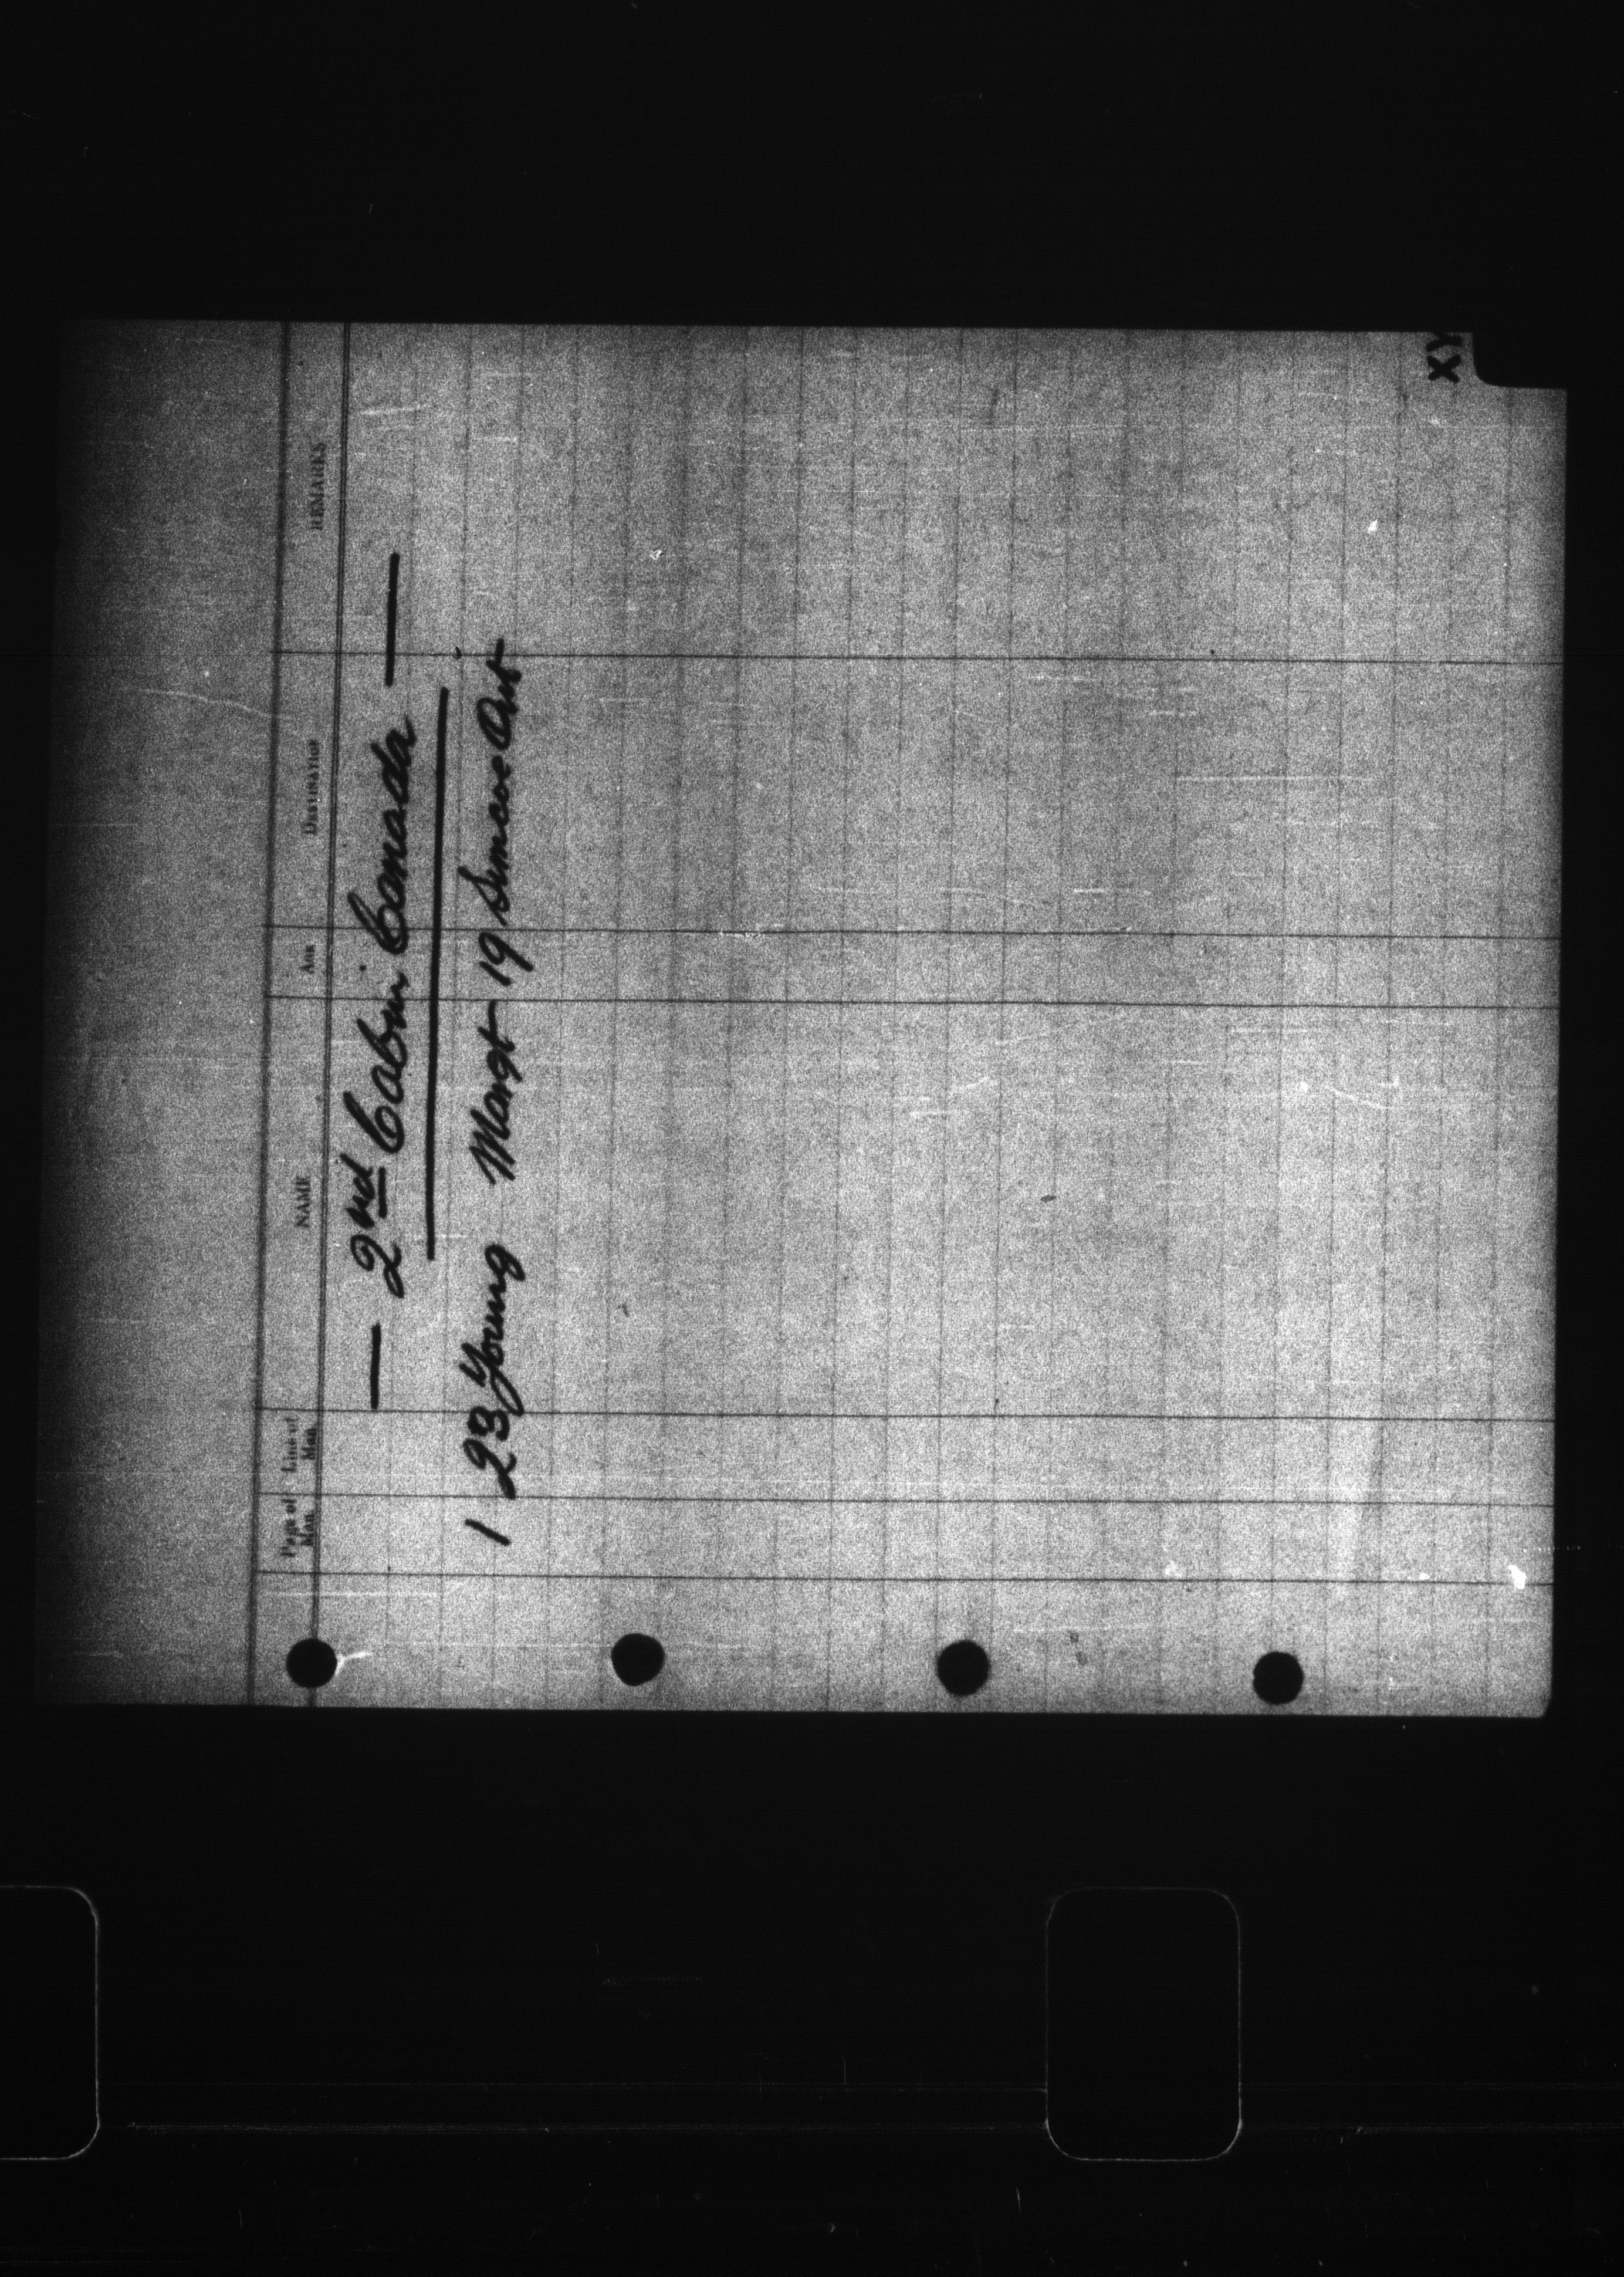 Page of Man. Line of Man. NAME AGE DESTINATION REMARKS
— 2nd Cabin Canada —
1 23 Young Margt 19 Simcoe Ont
XY